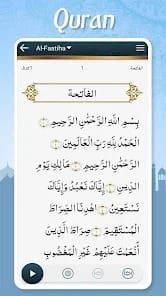 Quran
Al-Faatiha
الفاتحة
1
الفاتحة
بِسْمِ اللَّهِ الرَّحْمَٰنِ الرَّحِيمِ
الْحَمْدُ لِلَّهِ رَبِّ الْعَالَمِينَ
الرَّحْمَٰنِ الرَّحِيمِ مَالِكِ يَوْمِ
الدِّينِ إِيَّاكَ نَعْبُدُ وَإِيَّاكَ
نَسْتَعِينُ اهْدِنَا الصِّرَاطَ
الْمُسْتَقِيمَ صِرَاطَ الَّذِينَ
أَنْعَمْتَ عَلَيْهِمْ غَيْرِ الْمَغْضُوبِ